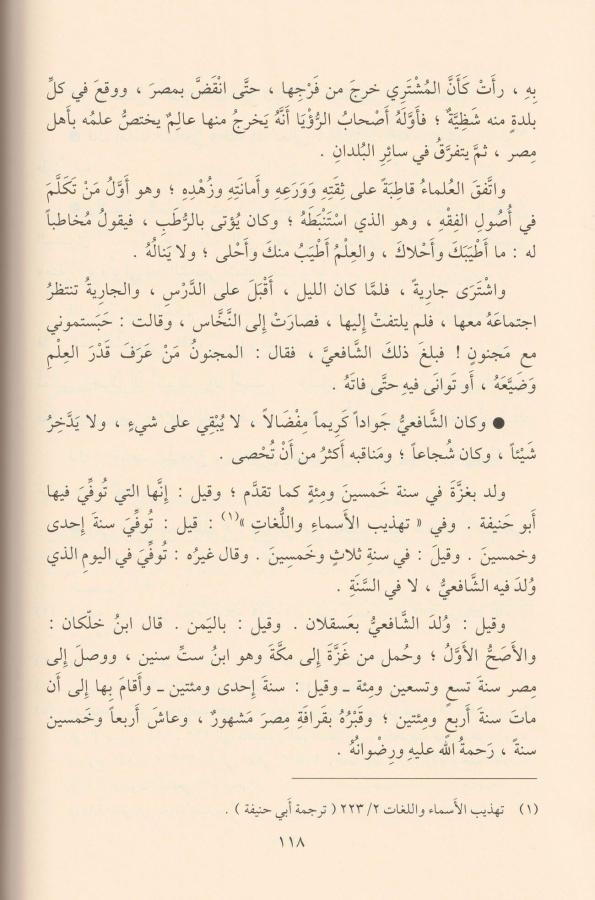 بِهِ ، رأَتْ كَأَنَّ المُشْتَرِي خرجَ من فَرْجِها ، حتَّى انْقَضَّ بمصرَ ، ووقعَ في كلِّ
بلدةٍ منه شَظِيَّةٌ ؛ فأوَّلَهُ أَصْحابُ الرُّؤْيَا أَنَّهُ يَخرجُ منها عالِمٌ يختصُّ علمُه بأَهل
مِصر ، ثمَّ يتفرَّقُ في سائِرِ البُلدانِ .
واتَّفقَ العُلماءُ قاطِبَةً على ثِقَتِهِ وَوَرَعِهِ وأَمانَتِهِ وزُهْدِهِ ؛ وهو أَوَّلُ مَنْ تَكَلَّمَ
في أُصُولِ الفِقْهِ ، وهو الذي اسْتَنْبَطَهُ ؛ وكان يُؤتى بالرُّطَبِ ، فيقولُ مُخاطباً
له : ما أَطْيَبَكَ وأَحْلاكَ ، والعِلْمُ أَطيَبُ منكَ وأَحْلى ؛ ولا يَنالُهُ .
واشْتَرَى جارِيةً ، فلمَّا كان الليل ، أَقْبَلَ على الدَّرْسِ ، والجارِيةُ تنتظرُ
اجتماعَهُ معها ، فلم يلتفتْ إِليها ، فصارَتْ إِلى النَّخَّاس ، وقالت : حَبَستموني
مع مَجنونٍ ! فبلغَ ذلكَ الشَّافعيَّ ، فقال : المجنونُ مَنْ عَرَفَ قَدْرَ العِلْمِ
وَضَيَّعَهُ ، أَو تَوانَى فيهِ حتَّى فاتَهُ .
● وكان الشَّافعيُّ جَواداً كَرِيماً مِفْضَالاً ، لا يُبْقِي على شيءٍ ، ولا يَدَّخِرُ
شَيْئاً ، وكان شُجاعاً ؛ ومَناقبه أَكثرُ من أَنْ تُحْصى .
ولد بغزَّةَ في سنة خَمسينَ ومِئةٍ كما تقدَّم ؛ وقيل : إِنَّها التي تُوفِّيَ فيها
أَبو حَنيفة . وفي « تهذيب الأَسماءِ واللُّغاتِ »(١) : قيل : تُوفِّيَ سنةَ إحدى
وخمسينَ . وقيلَ : في سنةِ ثلاثٍ وخَمسِينَ . وقال غيرُه : تُوفِّيَ في اليومِ الذي
وُلدَ فيه الشَّافعيُّ ، لا في السَّنَةِ .
وقيل : وُلدَ الشَّافعيُّ بعَسقلان . وقيل : باليَمن . قال ابنُ خلّكان :
والأَصَحُّ الأَوَّلُ ؛ وحُمل من غَزَّةَ إِلى مكَّةَ وهو ابنُ ستِّ سنين ، ووصلَ إِلى
مِصر سنةَ تسعٍ وتسعين ومِئة ـ وقيل : سنةَ إِحدى ومئتين ـ وأَقامَ بِها إِلى أَن
ماتَ سنةَ أَربعٍ ومِئتين ؛ وقَبْرُهُ بقَرافَةِ مِصرَ مَشهورٌ ، وعاشَ أَربعاً وخَمسين
سنةً ، رَحمةُ الله عليهِ ورِضْوانُهُ .
(١) تهذيب الأَسماء واللغات ٢/ ٢٢٣ ( ترجمة أَبي حنيفة ) .
١١٨